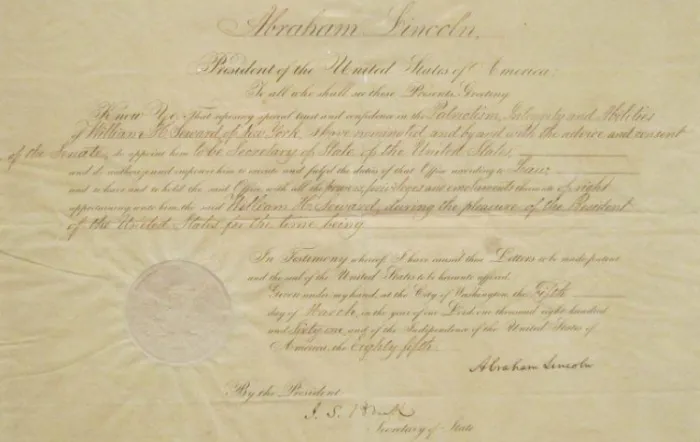 Abraham Lincoln,
President of the United States of America.
To all who shall see these Presents, Greeting
Know Ye, That reposing special trust and confidence in the Patriotism, Integrity and Abilities
of William H. Seward of New York, I have nominated and by and with the advice and consent
of the Senate, do appoint him to be Secretary of State of the United States,
and do authorize and empower him to execute and fulfil the duties of that Office according to Law;
and to have and to hold the said Office, with all the powers, privileges and emoluments thereunto of right
appertaining unto him the said William H. Seward, during the pleasure of the President
of the United States for the time being.
In Testimony whereof I have caused these Letters to be made patent
and the seal of the United States to be hereunto affixed.
Given under my hand, at the City of Washington, the Fifth
day of March, in the year of our Lord one thousand eight hundred
and Sixty one, and of the Independence of the United States of
America, the Eighty fifth.
Abraham Lincoln
By the President
J. S.
Secretary of State